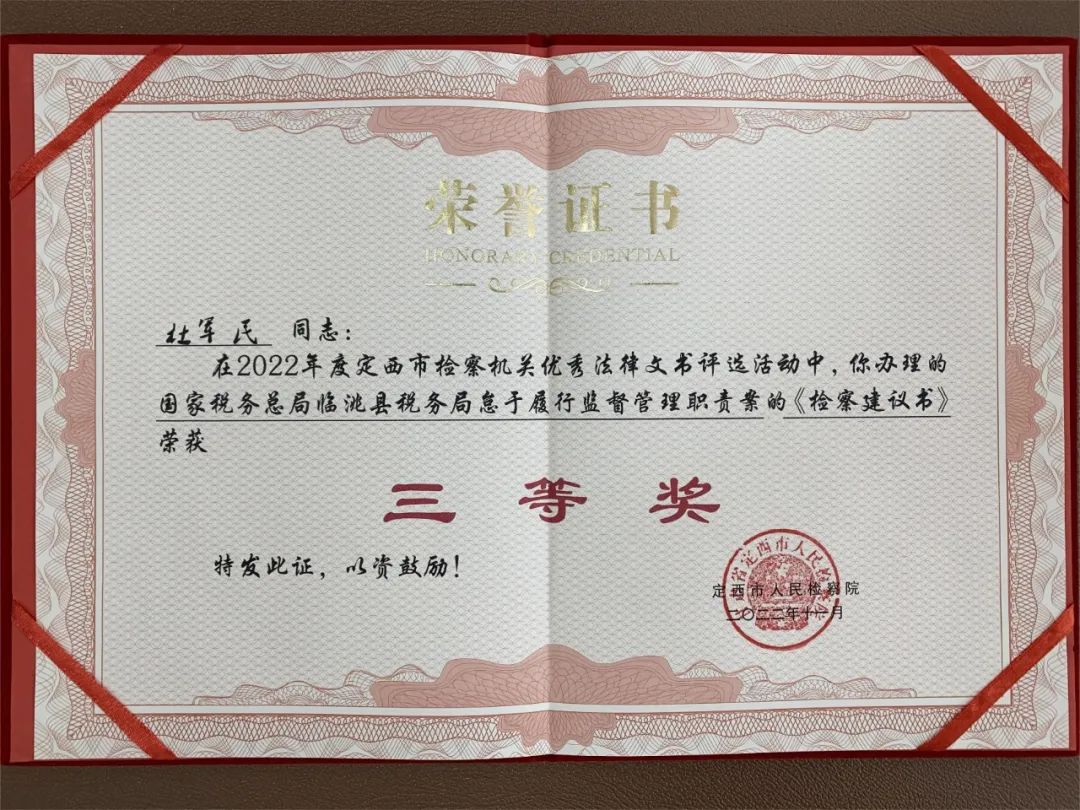 荣誉证书
HONORARY CREDENTIAL
杜军民 同志：
在2022年度定西市检察机关优秀法律文书评选活动中，你办理的
国家税务总局临洮县税务局怠于履行监督管理职责案的《检察建议书》
荣获
三等奖
特发此证，以资鼓励！
定西市人民检察院
二〇二二年十一月